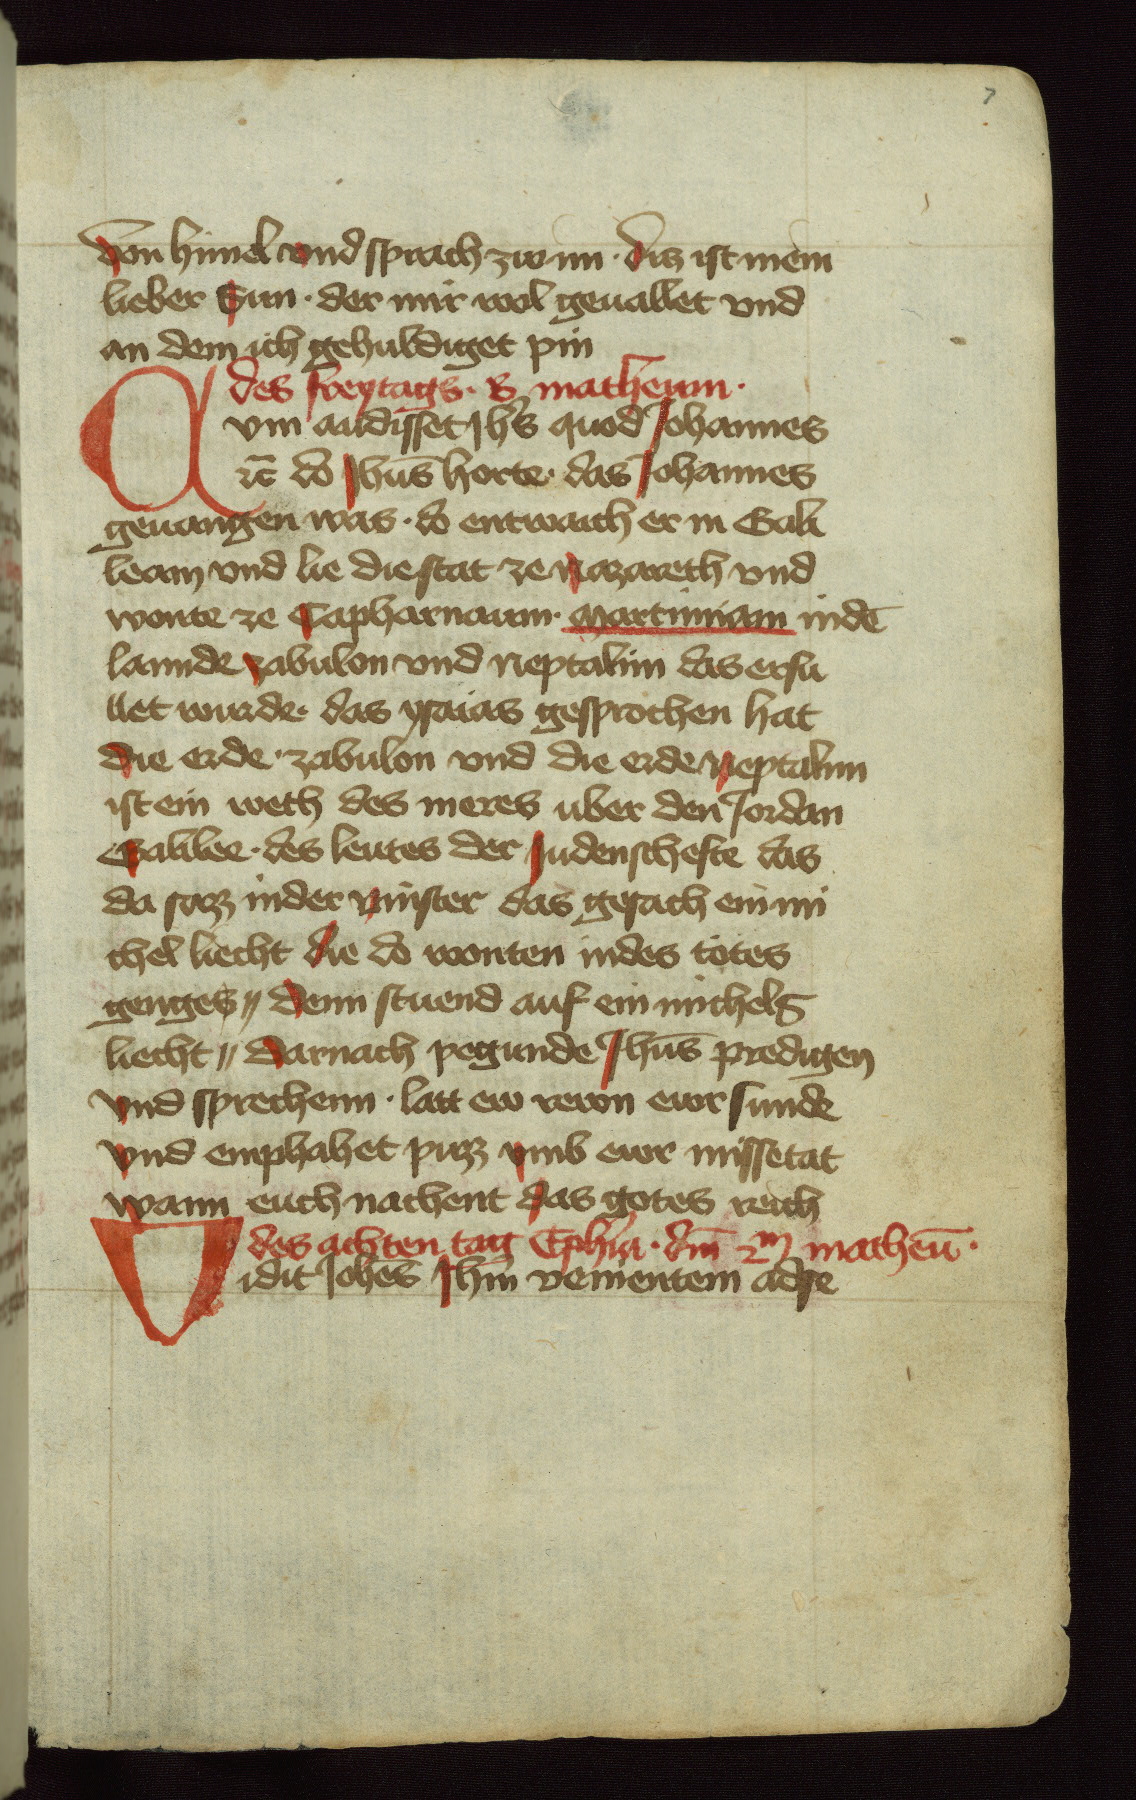 7
von himel vnd sprach zw im · diz ist mein
lieber Sun · der mir wol geuallet vnd
an dem ich gehuldiget pin
des freytags · S matheum ·
Cvm audisset Jhs̄ quod Johannes
rc̄ do Jhūs horte · das Johannes
geuangen was · do entwaich er in Gali
leam vnd lie die stat ze Nazareth vnd
wonte ze Capharnaum · martimam in dē
lannde zabulon vnd Neptalim das erfu
llet wurde · das ysaias gesprochen hat
die erde · zabulon vnd die erde Neptalim
ist ein weth des meres uber den Jordan
Galilee · des leutes der Judenschefte das
da saz in der vinster das gesach ein mi
chel liecht die do wonten in des totes
genges // denn stuend auf ein michels
liecht // Darnach pegunde Jhūs predigen
vnd sprechenn · latt ew rewn ewr sunde
vnd emphahet puz vmb ewr missetat
wann euch nachent das gotes reich
des achten tag Ephia · dm̄ 2m matheū ·
Vidit Johēs Jhm̄ venientem ad se